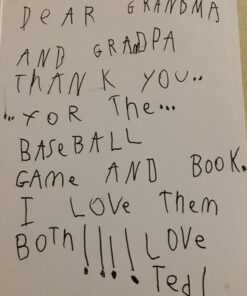 DEAR GRANDMA
AND GRADPA
THANK YOU..
..FOR THe...
BASeBALL
GAMe AND BOOK.
I LOVe THem
BOTH!!!! LOVe
Ted!